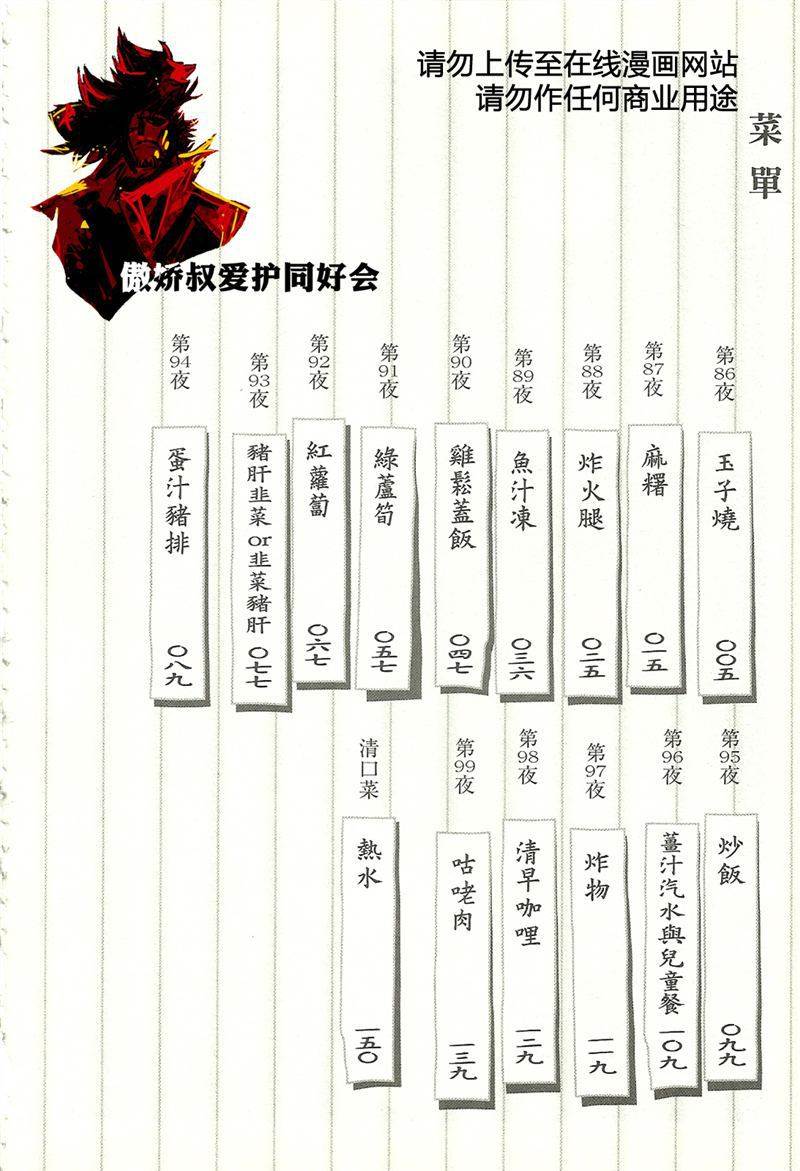 请勿上传至在线漫画网站
请勿作任何商业用途
菜單
傲娇叔爱护同好会
第86夜
玉子燒 〇〇五
第87夜
麻糬 〇一五
第88夜
炸火腿 〇二五
第89夜
魚汁凍 〇三六
第90夜
雞鬆蓋飯 〇四七
第91夜
綠蘆筍 〇五七
第92夜
紅蘿蔔 〇六七
第93夜
豬肝韭菜or韭菜豬肝 〇七七
第94夜
蛋汁豬排 〇八九
第95夜
炒飯 〇九九
第96夜
薑汁汽水與兒童餐 一〇九
第97夜
炸物 一一九
第98夜
清早咖哩 一二九
第99夜
咕咾肉 一三九
清口菜
熱水 一五〇